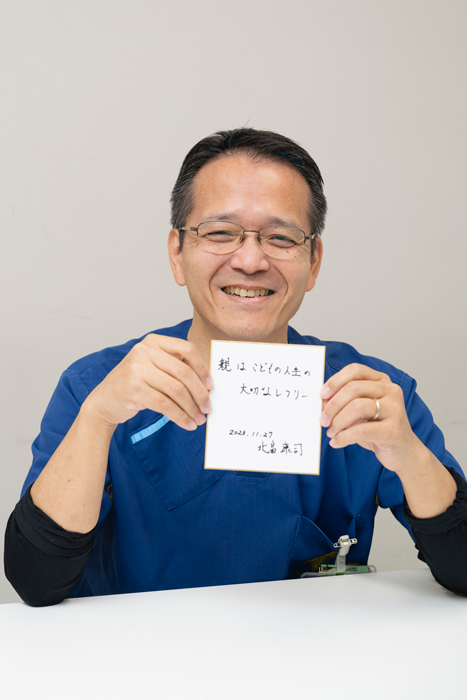 親はこどもの人生の
大切なレフリー
2023.11.27
北畠康司